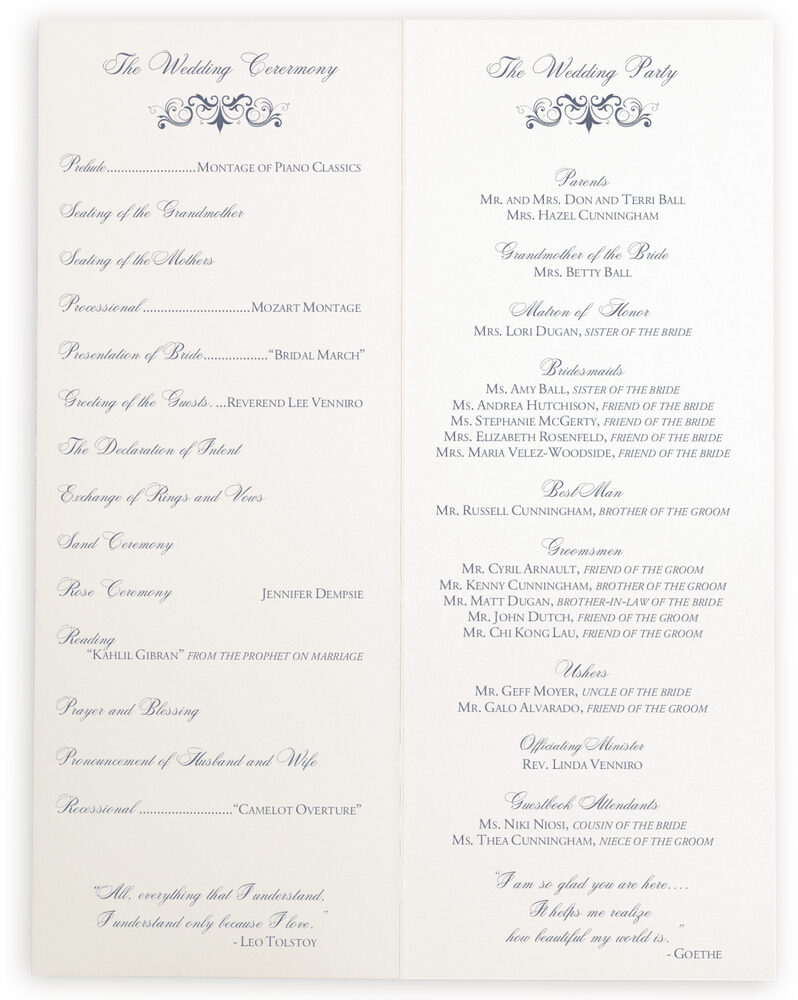 The Wedding Cerermony
Prelude.........................MONTAGE OF PIANO CLASSICS
Seating of the Grandmother
Seating of the Mothers
Processional..............................MOZART MONTAGE
Presentation of Bride..................“BRIDAL MARCH”
Greeting of the Guests. ...REVEREND LEE VENNIRO
The Declaration of Intent
Exchange of Rings and Vows
Sand Ceremony
Rose Ceremony JENNIFER DEMPSIE
Reading
“KAHLIL GIBRAN” FROM THE PROPHET ON MARRIAGE
Prayer and Blessing
Pronouncement of Husband and Wife
Recessional..........................“CAMELOT OVERTURE”
“All, everything that I understand,
I understand only because I love. ”
- LEO TOLSTOY
The Wedding Party
Parents
MR. AND MRS. DON AND TERRI BALL
MRS. HAZEL CUNNINGHAM
Grandmother of the Bride
MRS. BETTY BALL
Matron of Honor
MRS. LORI DUGAN, SISTER OF THE BRIDE
Bridesmaids
MS. AMY BALL, SISTER OF THE BRIDE
MS. ANDREA HUTCHISON, FRIEND OF THE BRIDE
MS. STEPHANIE MCGERTY, FRIEND OF THE BRIDE
MRS. ELIZABETH ROSENFELD, FRIEND OF THE BRIDE
MRS. MARIA VELEZ-WOODSIDE, FRIEND OF THE BRIDE
Best Man
MR. RUSSELL CUNNINGHAM, BROTHER OF THE GROOM
Groomsmen
MR. CYRIL ARNAULT, FRIEND OF THE GROOM
MR. KENNY CUNNINGHAM, BROTHER OF THE GROOM
MR. MATT DUGAN, BROTHER-IN-LAW OF THE BRIDE
MR. JOHN DUTCH, FRIEND OF THE GROOM
MR. CHI KONG LAU, FRIEND OF THE GROOM
Ushers
MR. GEFF MOYER, UNCLE OF THE BRIDE
MR. GALO ALVARADO, FRIEND OF THE GROOM
Officiating Minister
REV. LINDA VENNIRO
Guestbook Attendants
MS. NIKI NIOSI, COUSIN OF THE BRIDE
MS. THEA CUNNINGHAM, NIECE OF THE GROOM
“I am so glad you are here....
It helps me realize
how beautiful my world is. ”
- GOETHE